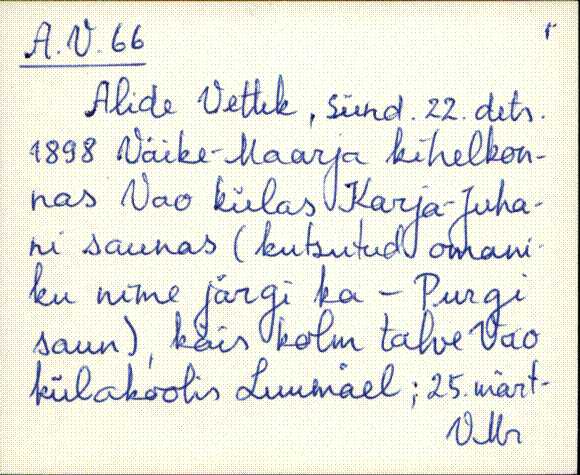 A.V. 66
Alide Vettik, sünd. 22. dets.
1898 Väike-Maarja kihelkon-
nas Vao külas Karja-Juha-
ni saunas (kutsutud omani-
ku nime järgi ka – Purgi
saun), käis kolm talve Vao
külakoolis Luumäel; 25. märt-
VMr